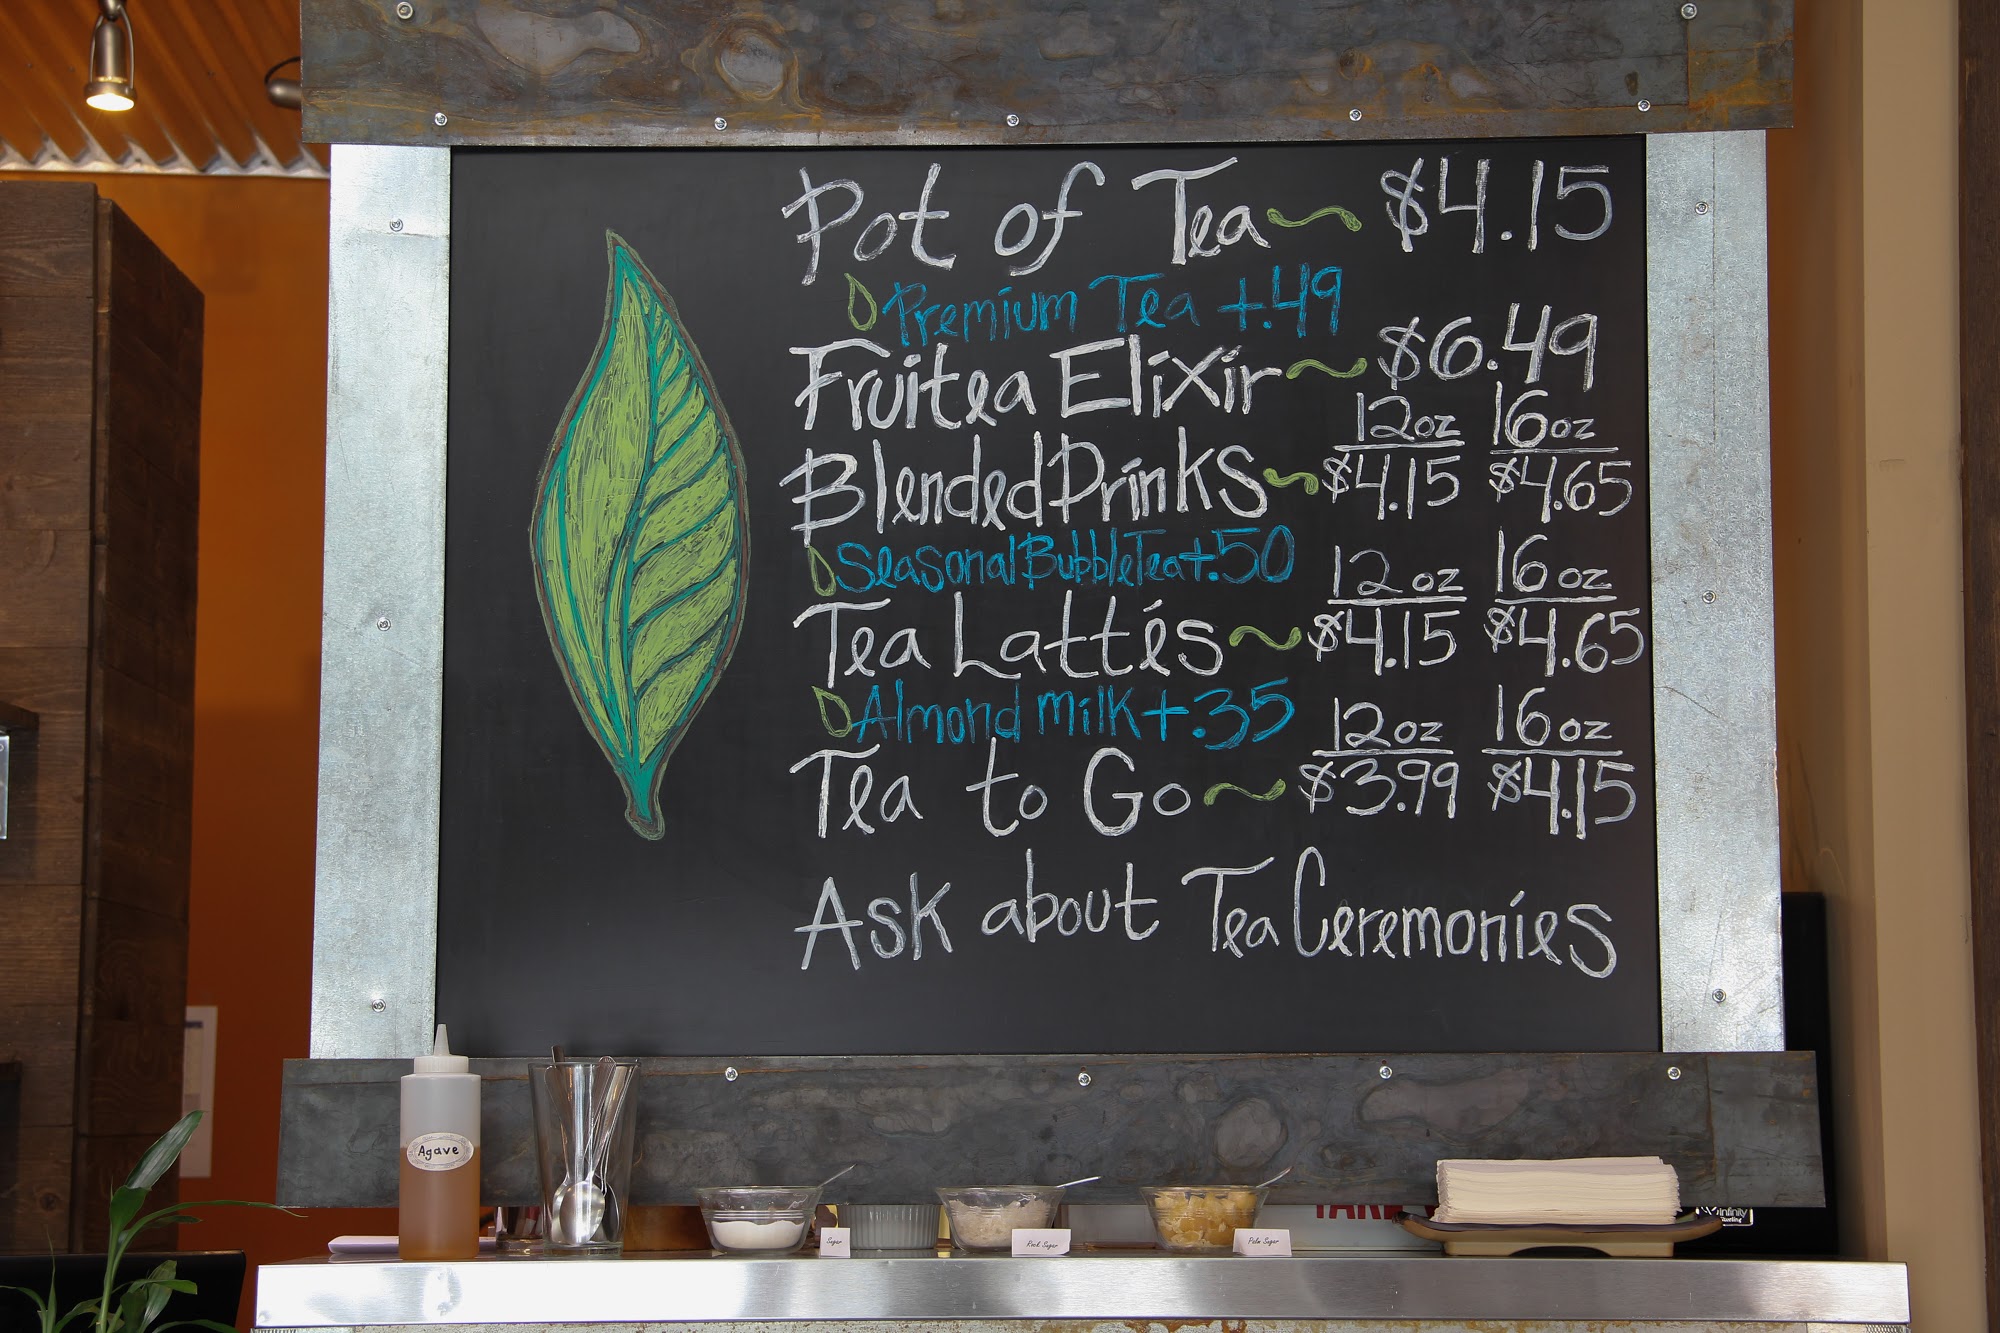 Pot of Tea ~ $4.15
Premium Tea +.49
Fruitea Elixir ~ $6.49
12oz 16oz
Blended Drinks ~ $4.15 $4.65
Seasonal Bubble Tea +.50
12oz 16oz
Tea Lattés ~ $4.15 $4.65
Almond Milk +.35
12oz 16oz
Tea to Go ~ $3.99 $4.15
Ask about Tea Ceremonies
Agave
Sugar
Rock Sugar
Palm Sugar
Infinity